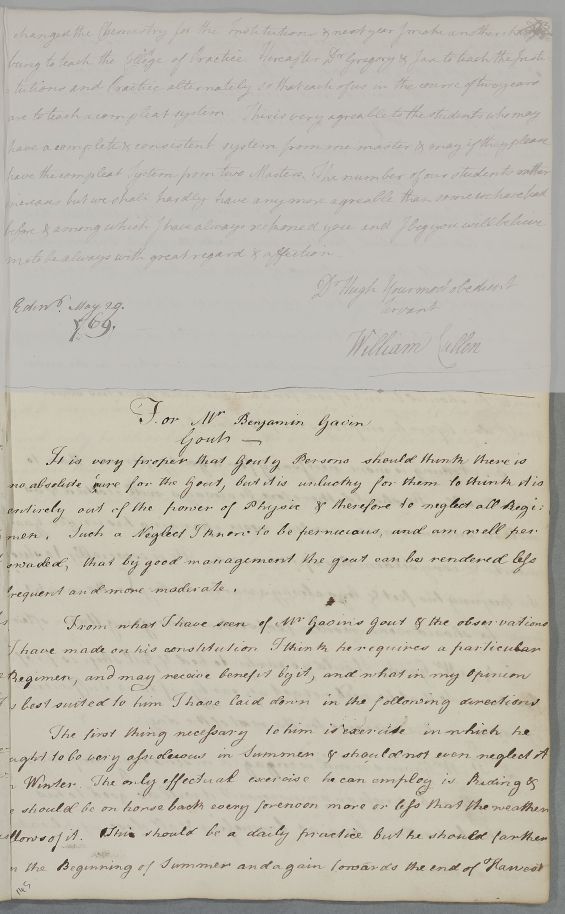 changed the Chemistry for the Institutions & next year I make another change
being to teach the of Practice Hereafter Dr Gregory & I are to teach the Insti
tutions and Practice alternately so that each of us in the course of two years
are to teach a compleat system. This is very agreable to the students who may
have a complete & consistent system from one master & may if they please
have the compleat System from two Masters. The number of our students rather
increases but we shall hardly have any more agreable than some we have had
before & among which I have always reckoned you and I beg you will believe
me to be always with great regard & affection
Dr Hugh Your most obedient
Servant
Edinr. May 29.
69.
William Cullen
For Mr Benjamin Gavin
Gout —
It is very proper that Gouty Persons should think there is
no absolute cure for the Gout, but it is unlucky for them to think it is
entirely out of the power of Physic & therefore to neglect all Regi:
men. Such a Neglect I know to be pernicious, and am well per
swaded, that by good management the gout can be rendered less
frequent and more moderate.
From what I have seen of Mr Gavins Gout & the observations
I have made on his constitution I think he requires a particular
Regimen, and may receive benefit by it, and what in my Opinion
is best suited to him I have laid down in the following directions
The first thing necessary to him is exercise in which he
ought to be very assiduous in Summer & should not even neglect it
in Winter. The only effectual exercise he can employ is Riding &
he should be on horse back every forenoon more or less that the weather
allows of it. This should be a daily practice but he should farther
in the Beginning of Summer and again towards the end of Harvest